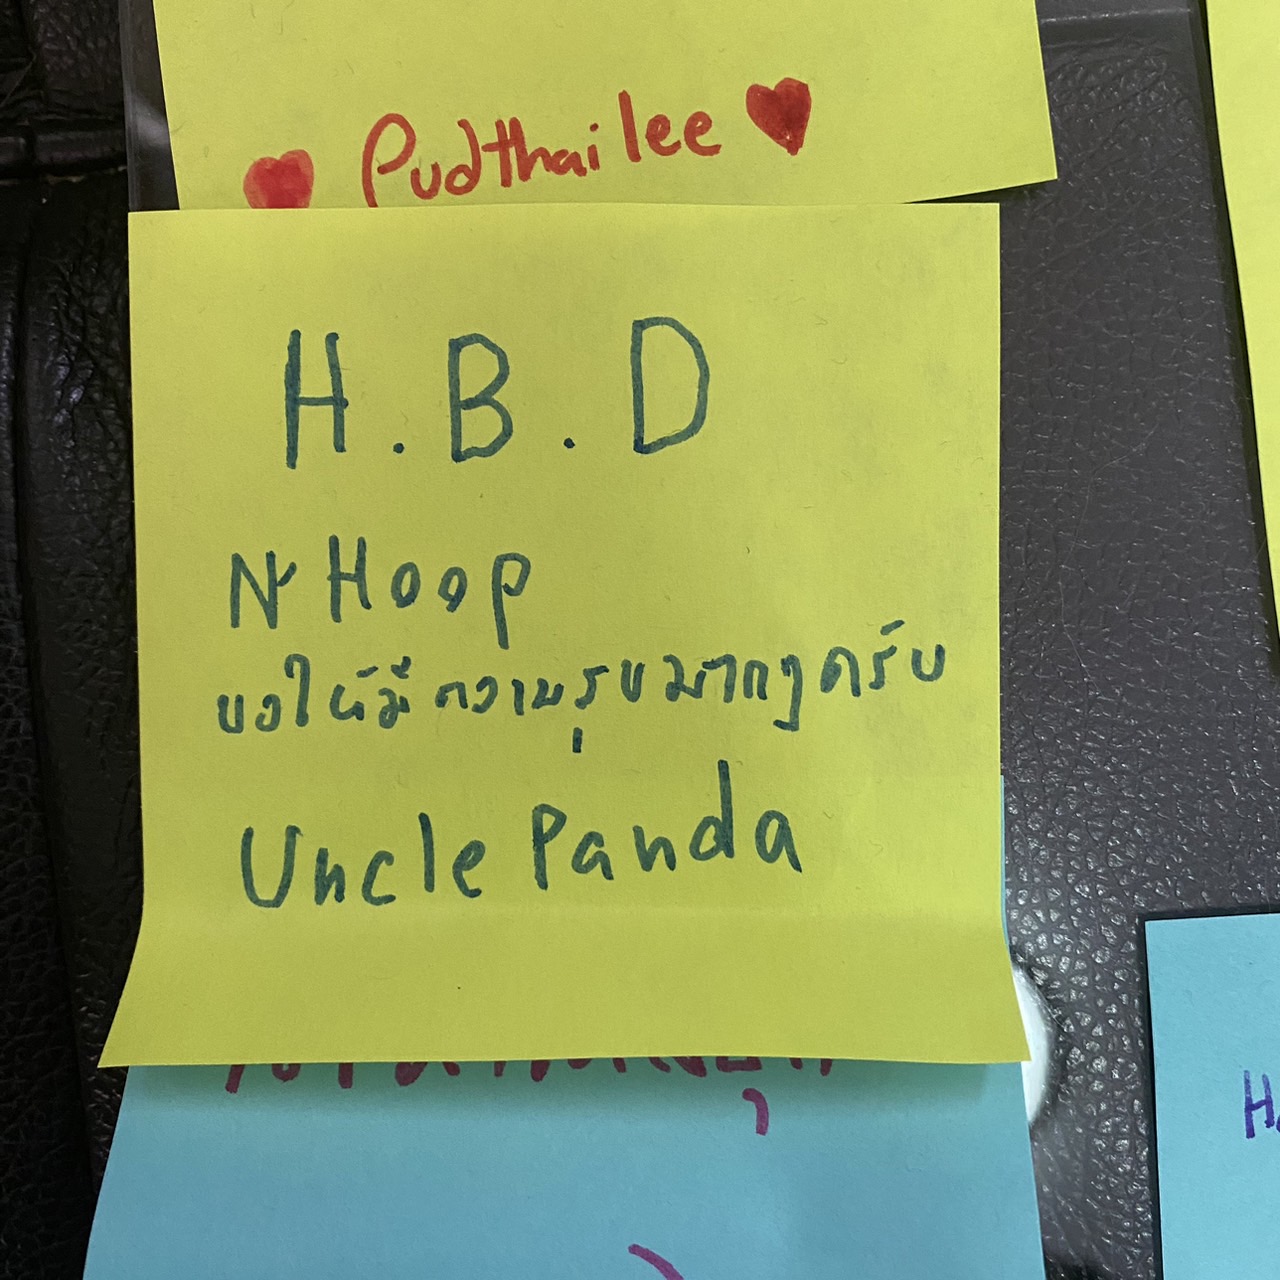 Pudthailee
H.B.D
Hoop
ขอให้มีความสุขมากๆครับ
Uncle Panda